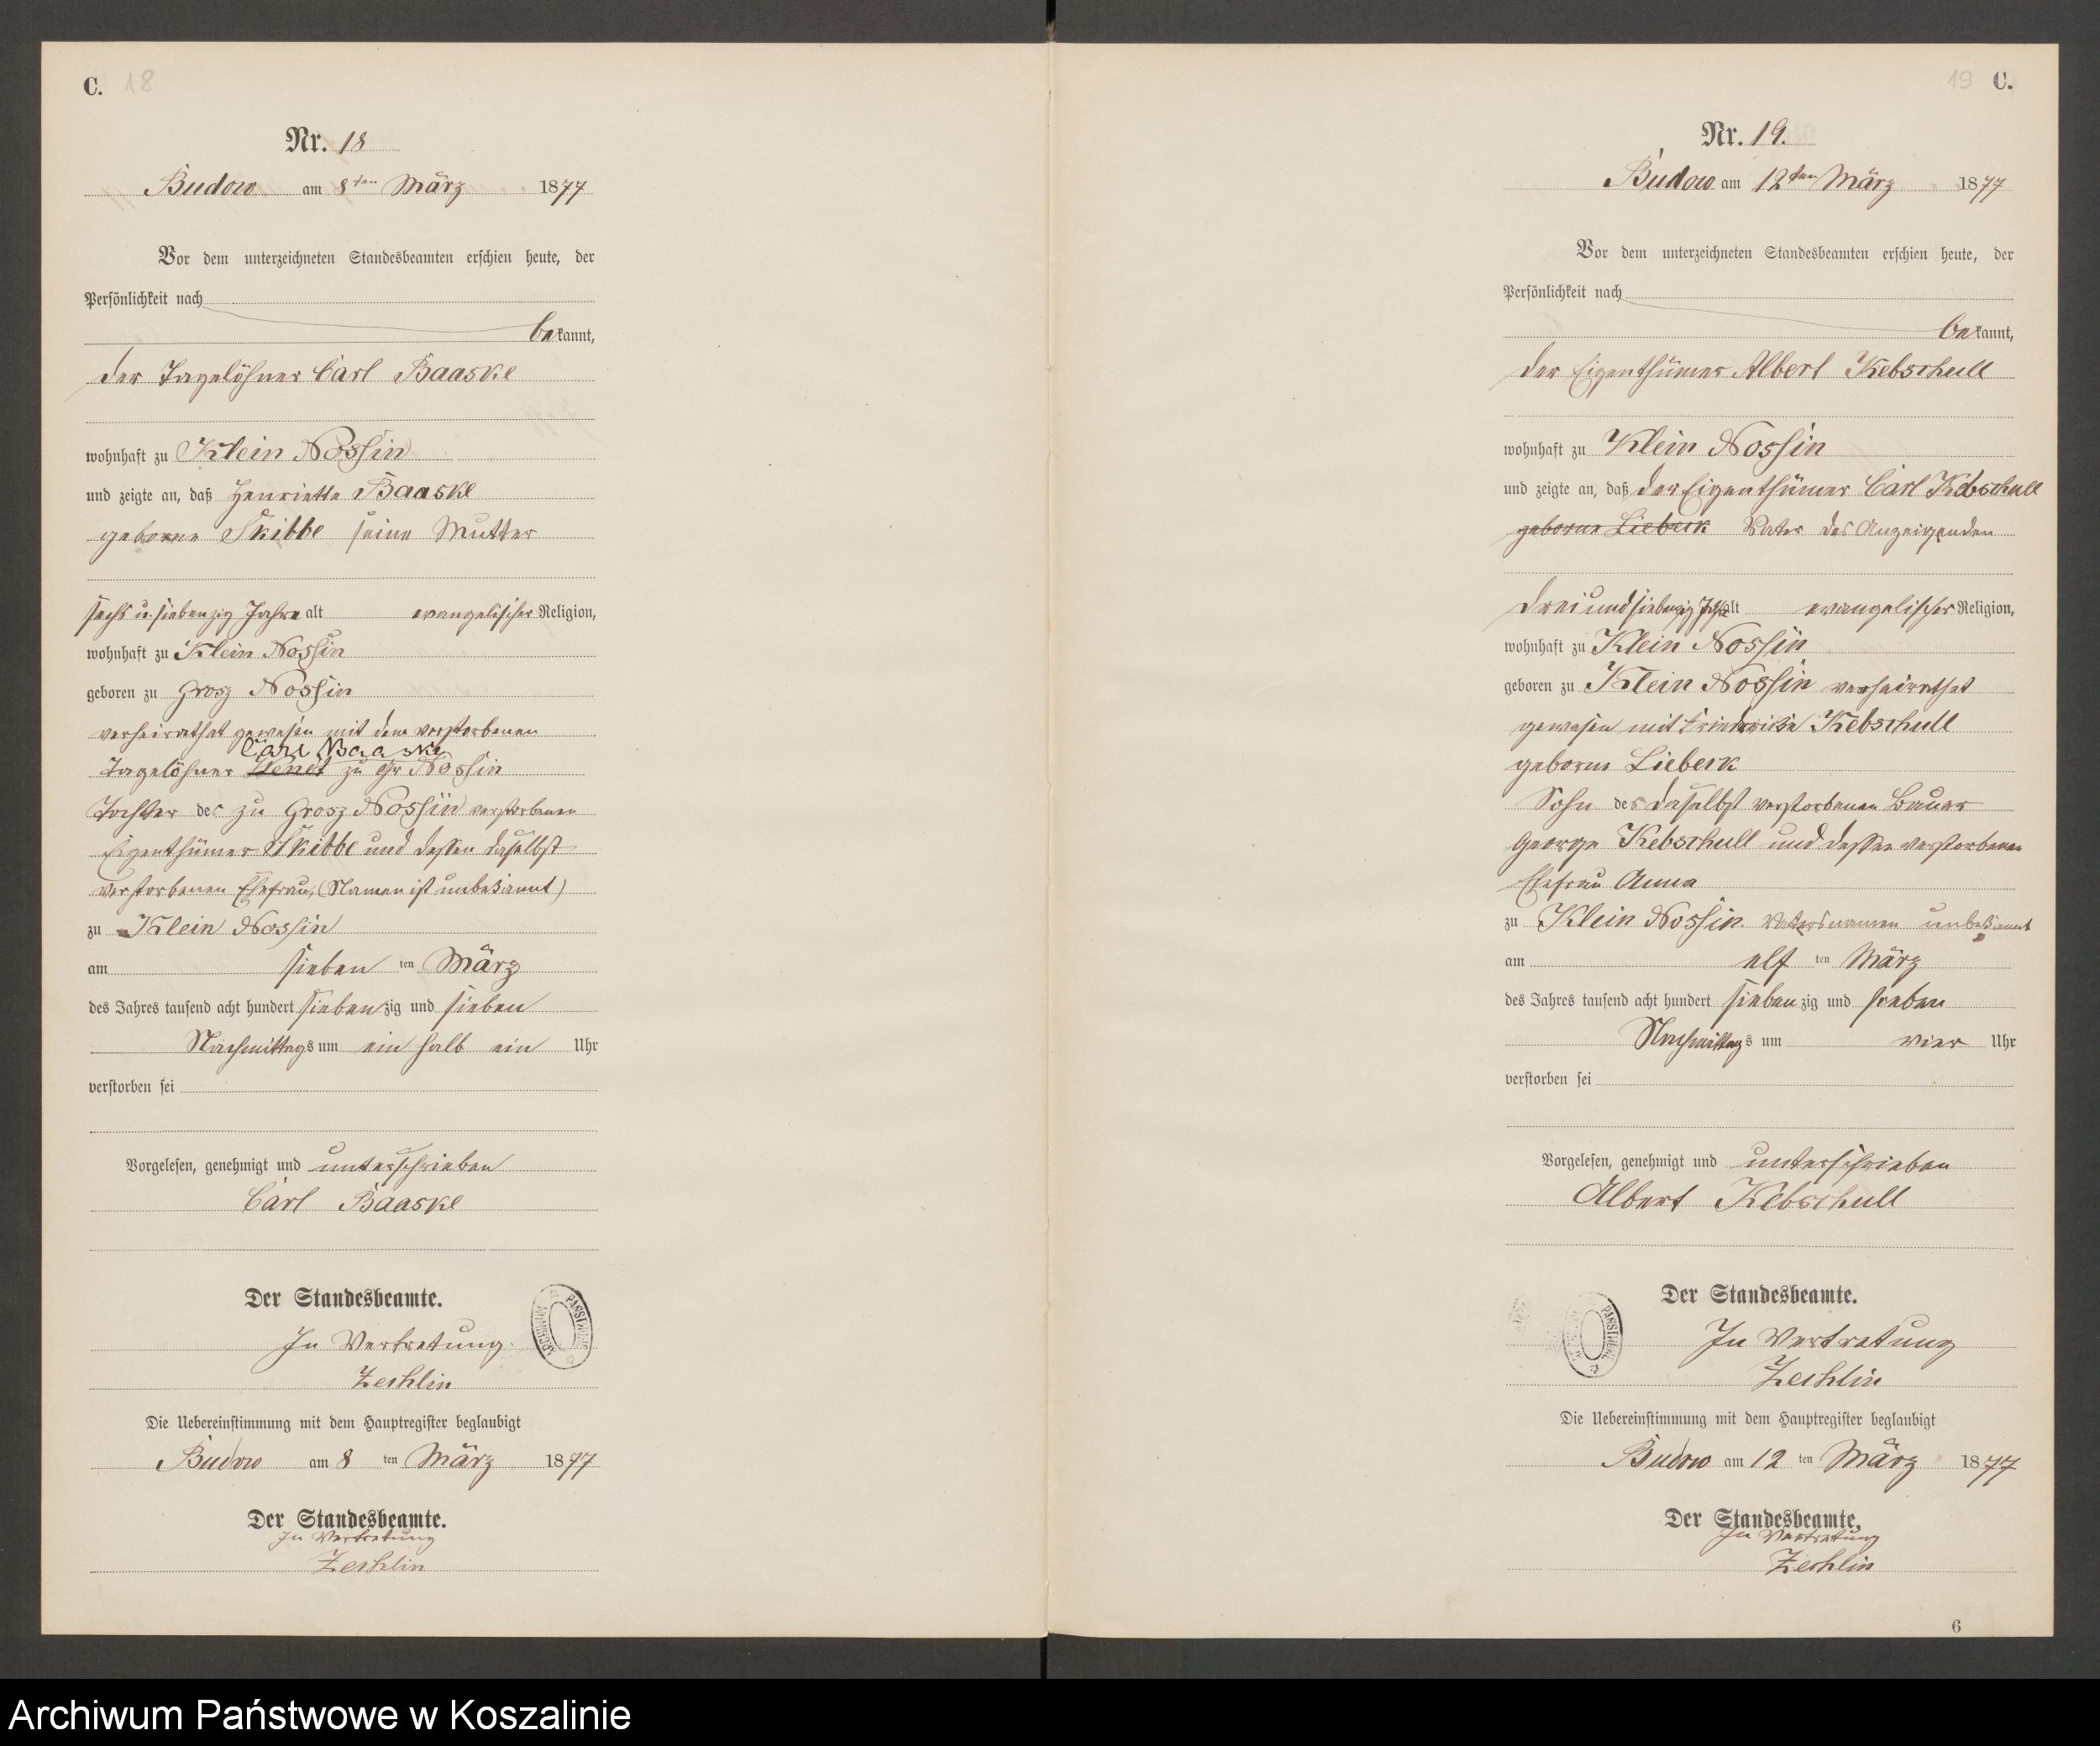 C. 18
Nr. 18
Budow am 8ten März 1877
Vor dem unterzeichneten Standesbeamten erschien heute, der
Persönlichkeit nach
bekannt,
der Tagelöhner Carl Baaske
wohnhaft zu Klein Nossin
und zeigte an, daß Henriette Baaske
geborne Skibbe seine Mutter
sechs u. siebenzig Jahre alt evangelischer Religion,
wohnhaft zu Klein Nossin
geboren zu Grosz Nossin
verheirathet gewesen mit dem verstorbenen
Carl Baaske
Tagelöhner Wendt zu Gr Nossin
Tochter des zu Grosz Nossin verstorbenen
Eigenthümer Skibbe und dessen daselbst
verstorbenen Ehefrau, (Namen ist unbekannt)
zu Klein Nossin
am sieben ten März
des Jahres tausend acht hundert siebenzig und sieben
Nachmittags um ein halb ein Uhr
verstorben sei
Vorgelesen, genehmigt und unterschrieben
Carl Baaske
Der Standesbeamte.
In Vertretung.
Zechlin
ARCHIWUM PAŃSTWOWE
Die Uebereinstimmung mit dem Hauptregister beglaubigt
Budow am 8 ten März 1877
Der Standesbeamte.
In Vertretung
Zechlin
19 C.
Nr. 19.
Budow am 12ten März 1877
Vor dem unterzeichneten Standesbeamten erschien heute, der
Persönlichkeit nach
bekannt,
der Eigenthümer Albert Kebschull
wohnhaft zu Klein Nossin
und zeigte an, daß der Eigenthümer Carl Kebschull
geborne Lieberk Vater des Anzeigenden
drei und siebenzig Jahre alt evangelischer Religion,
wohnhaft zu Klein Nossin
geboren zu Klein Nossin verheirathet
gewesen mit Friederike Kebschull
geborne Lieberk
Sohn des daselbst verstorbenen Bauer
George Kebschull und dessen verstorbenen
Ehefrau Anna
zu Klein Nossin. Vatersnamen unbekannt
am elf ten März
des Jahres tausend acht hundert siebenzig und sieben
Nachmittags um vier Uhr
verstorben sei
Vorgelesen, genehmigt und unterschrieben
Albert Kebschull
Der Standesbeamte.
In Vertretung
Zechlin
Die Uebereinstimmung mit dem Hauptregister beglaubigt
Budow am 12 ten März 1877
Der Standesbeamte.
In Vertretung
Zechlin
6
Archiwum Państwowe w Koszalinie